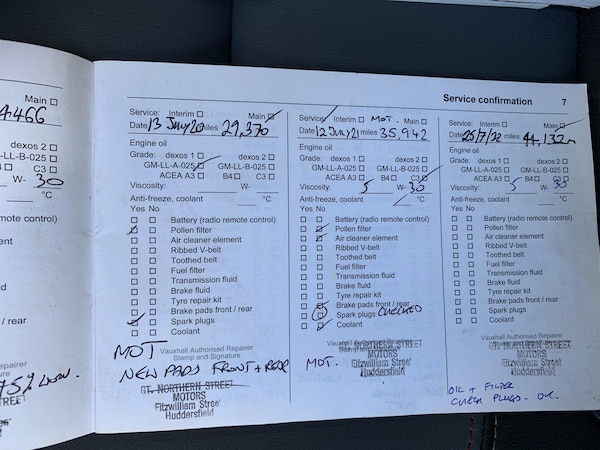 Service confirmation 7
Main
4466
dexos 2
GM-LL-B-025
C3
W- 30
°C
(radio remote control)
ement
t
uid
d
/ rear
Repairer
75%
STREET
Service: Interim Main
Date 13 July 20 miles 29,370
Engine oil
Grade: dexos 1 dexos 2
GM-LL-A-025 GM-LL-B-025
ACEA A3 B4 C3
Viscosity: W-
Anti-freeze, coolant °C
Yes No
Battery (radio remote control)
Pollen filter
Air cleaner element
Ribbed V-belt
Toothed belt
Fuel filter
Transmission fluid
Brake fluid
Tyre repair kit
Brake pads front / rear
Spark plugs
Coolant
Vauxhall Authorised Repairer
Stamp and Signature
MOT
NEW PADS FRONT + REAR
GT. NORTHERN STREET
MOTORS
Fitzwilliam Street
Huddersfield
Service: Interim MOT. Main
Date 12 July 21 miles 35,942
Engine oil
Grade: dexos 1 dexos 2
GM-LL-A-025 GM-LL-B-025
ACEA A3 B4 C3
Viscosity: 5 W- 30
Anti-freeze, coolant °C
Yes No
Battery (radio remote control)
Pollen filter
Air cleaner element
Ribbed V-belt
Toothed belt
Fuel filter
Transmission fluid
Brake fluid
Tyre repair kit
Brake pads front / rear
Spark plugs CHECKED
Coolant
Vauxhall Authorised Repairer
MOT.
GT. NORTHERN STREET
MOTORS
Fitzwilliam Street
Huddersfield
Service: Interim Main
Date 25/7/22 miles 44,132m
Engine oil
Grade: dexos 1 dexos 2
GM-LL-A-025 GM-LL-B-025
ACEA A3 B4 C3
Viscosity: 5 W- 30
Anti-freeze, coolant °C
Yes No
Battery (radio remote control)
Pollen filter
Air cleaner element
Ribbed V-belt
Toothed belt
Fuel filter
Transmission fluid
Brake fluid
Tyre repair kit
Brake pads front / rear
Spark plugs
Coolant
Vauxhall Authorised Repairer
Stamp and Signature
GT. NORTHERN STREET
MOTORS
Fitzwilliam Street
Huddersfield
OIL + FILTER
CHECK PLUGS - OK.